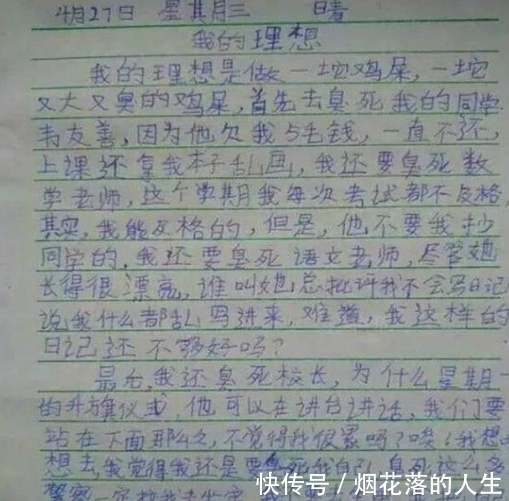 4月27日 星其月三 日晴
我的理想
我的理想是做一坨鸡屎，一坨
又大又臭的鸡屎，首先去臭死我的同学
韦友善，因为他欠我5毛钱，一直不还，
上课还拿我本子乱画，我还要臭死数
学老师，这个学期我每次考试都不及格，
其实，我能及格的，但是，他不要我抄
同学的，我还要臭死语文老师，尽管她
长得很漂亮，谁叫她总批评我不会写日记
说我什么都乱写进来，难道，我这样的
日记还不够好吗？
最后，我还臭死校长，为什么星期一
的升旗仪式，他可以在讲台讲话，我们要
站在下面那么久，不觉得我很累吗？唉！我想
想去，我觉得我还是要臭死我自己，臭死这么多
警察一定
快传号 / 烟花落的人生